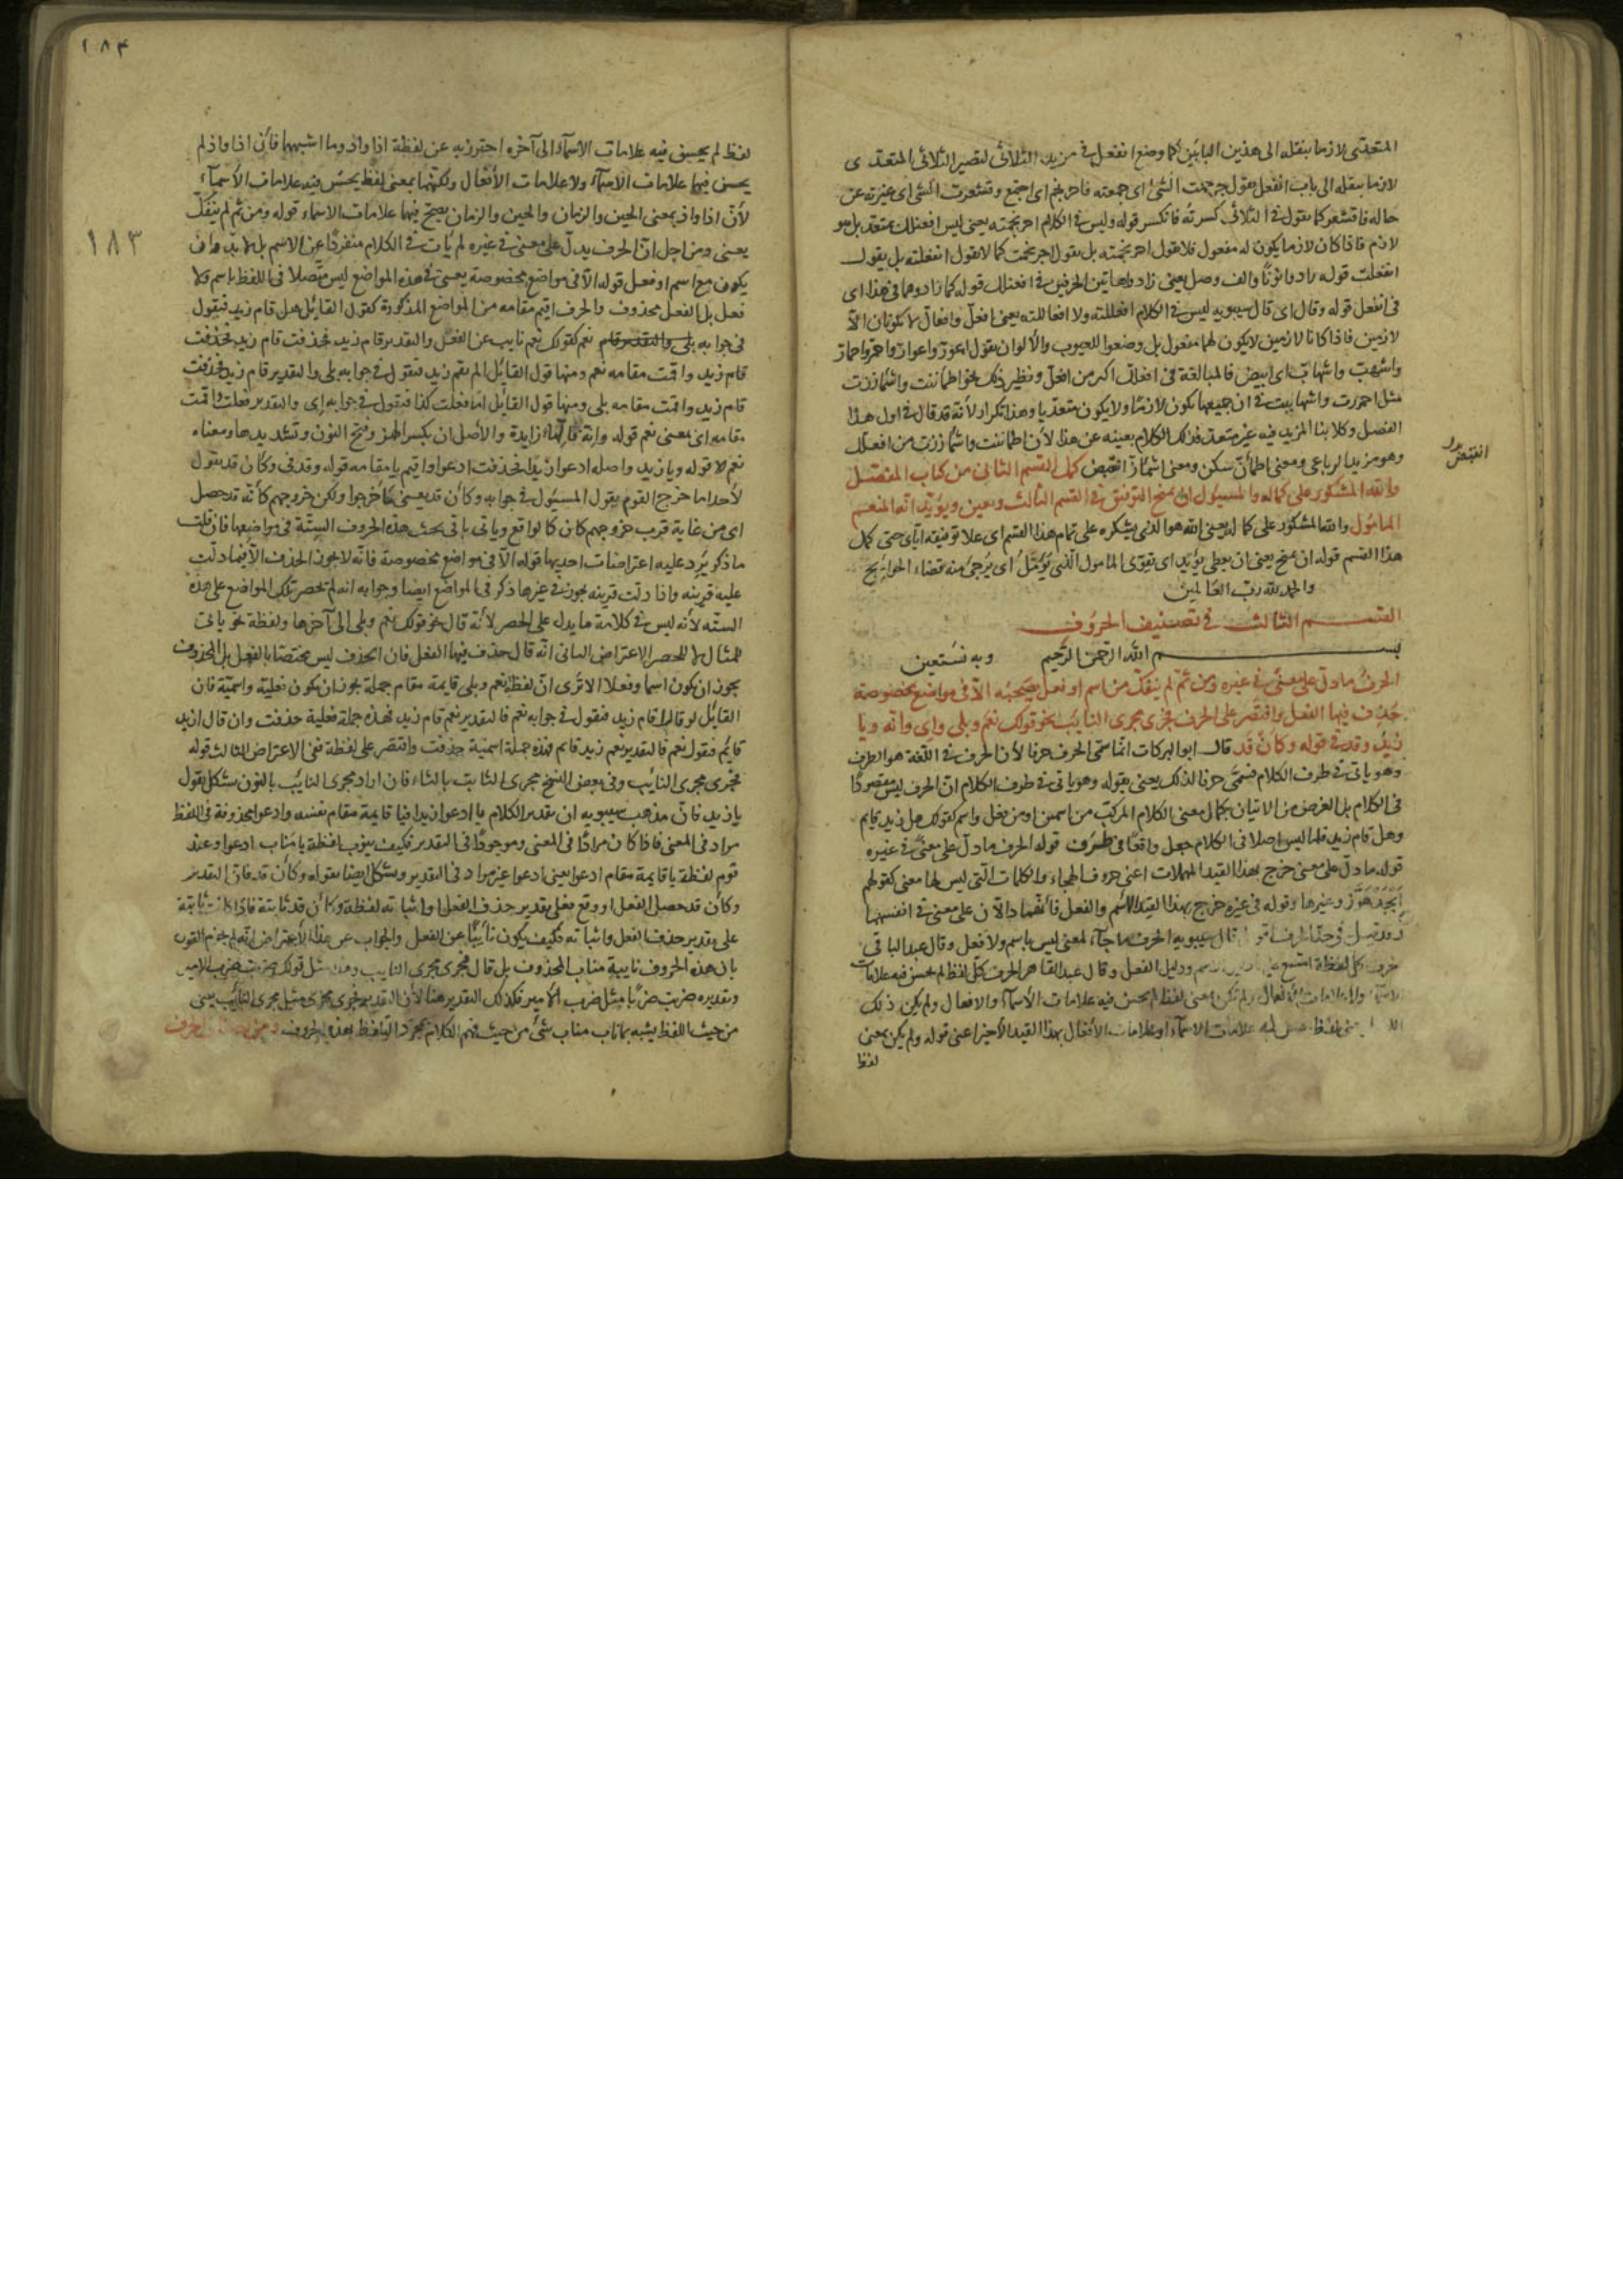 المتعدى لازما بنقله الى هذين البابين كما وضع انفعل في مزيد الثلاثى لتصير الثلاثى المتعدى
لازما بنقله الى باب انفعل يقول حرجمت الشئ اى جمعته فاحرنجم اى اجتمع وقشعرت الشئ اى غيرته عن
حاله فاقشعر كما يقول في الثلاثى كسرته فانكسر قوله وليس في الكلام احرنجمته يعنى ليس افعنلل متعد بل هو
لازم فاذا كان لازما يكون له مفعول فلا يقول احرنجمته بل يقول احرنجمت كما لا يقول انفعلته بل يقول
انفعلت قوله زادوا نونًا والف وصل يعنى زادوا هاتين الحرفين في افعنلل قوله كما زادوهما في هذا اى
فى انفعل قوله وقال اى قال سيبويه ليس في الكلام افعللته ولا افعاللته يعنى افعلّ وافعالّ لا يكونان الا
لازمين فاذا كانا لازمين لا يكون لهما مفعول بل وضعوا للعيوب والألوان يقول اعورّ واعوارّ واحمرّ واحمارّ
واشهبّ واشهابّ اى ابيض فالمبالغة فى افعالّ اكثر من افعلّ ونظير ذلك نحو اطماننت واشمازرت
مثل احمررت واشهاببت في ان جميعها يكون لازمًا ولا يكون متعديا وهذا تكرار لأنه قد قال في اول هذا
الفصل وكلا بنا المزيد فيه غير متعد فذلك الكلام بعينه عن هذا لأن اطماننت واشمأززت من افعلل
وهو مزيد الرباعى ومعنى اطمأن سكن ومعنى اشمأز انقبض كمل القسم الثانى من كتاب المفصّل
والله المشكور على كماله والمسئول ان يمنح التوفيق في القسم الثالث ويعين ويؤيد انه المنعم
المامول والله المشكور على كماله يعنى الله هو الذى يشكره على تمام هذا القسم اى على توفيقه اياى حتى كمل
هذا القسم قوله ان يمنح يعنى ان يعطى يؤيد اى يقوى المامول الذى يؤمّل اى يرجى منه قضاء الحوايج
والحمد لله رب العالمين
القسم الثالث في تصنيف الحروف
بسم الله الرحمن الرحيم وبه نستعين
الحرف ما دل على معنى في غيره ومن ثم لم ينفك من اسم او فعل يصحبه الا فى مواضع مخصوصة
حذف فيها الفعل واقتصر على الحرف فجرى مجرى النايب نحو قولك نعم وبلى واى وانّه ويا
زيد وقد في قوله وكأن قد قال ابو البركات انما سمى الحرف حرفا لأن الحرف في اللغة هو الطرف
وهو ياتى في طرف الكلام فسمّى حرفا لذلك يعنى بقوله وهو ياتى في طرف الكلام انّ الحرف ليس مقصودًا
فى الكلام بل الغرض من الاتيان بكمال معنى الكلام المركب من اسمين او من فعل واسم كقولك هل زيد قايم
وهل قام زيد فلما ليس اصلا فى الكلام جعل واقعًا في طرف قوله الحرف ما دلّ على معنى في غيره
قوله ما دلّ على معنى خرج بهذا القيد المهملات اعنى حروف الهجاء والكلمات التى ليس لها معنى كقولهم
ابجد هوّز وغيرها وقوله فى غيره خرج بهذا القيد الاسم والفعل فانّهما دالان على معنى في انفسهما
وقد قيل في حدّ الحرف اقوال قال سيبويه الحرف ما جاء لمعنى ليس باسم ولا فعل وقال عبد الباقى
حرف كل لفظة امتنع عن دليل الاسم ودليل الفعل وقال عبد القاهر الحرف كل لفظ لم يحسن فيه علامات
الاسماء ولا علامات الأفعال ولم تكن بمعنى لفظ لم يحسن فيه علامات الأسماء والافعال ولم يكن ذلك
بمعنى لفظ فيه علامات الاسماء او علامات الأفعال بهذا القيد الأخير اعنى قوله ولم يكن بمعنى
لفظ
انقبض
١٨٤
١٨٣
لفظ لم يحسن فيه علامات الاسماء الى آخره احترز به عن لفظة اذا واذ وما اشبههما فأن اذا واذ لم
يحسن فيها علامات الاسماء ولا علامات الأفعال ولكنهما بمعنى لفظ يحسن فيه علامات الأسماء
لأن اذا واذ بمعنى الحين والزمان والحين والزمان يصح فيها علامات الاسماء قوله ومن ثم لم ينفك
يعنى ومن اجل ان الحرف يدل على معنى في غيره لم يأت في الكلام منفردًا عن الاسم بل لا بد وان
يكون مع اسم او فعل قوله الا فى مواضع مخصوصة يعنى في هذه المواضع ليس متّصلا فى اللفظ باسم ولا
فعل بل الفعل محذوف والحرف اقيم مقامه من المواضع المذكورة كقول القائل هل قام زيد فيقول
فى جوابه بلى والتقدير قام نعم كقولك نعم نايب عن الفعل والتقدير قام زيد فحذفت قام زيد فحذفت
قام زيد واقمت مقامه نعم ومنها قول القائل الم يقم زيد فتقول في جوابه بلى والتقدير قام زيد فحذفت
قام زيد واقمت مقامه بلى ومنها قول القائل افعلت كذا فيقول في جوابه اى والتقدير فعلت واقمت
مقامه اى بمعنى نعم قوله وانّه فالهاء زايدة والأصل ان بكسر الهمز وفتح النون وتشديدها ومعناه
نعم لا قوله ويا زيد واصله ادعوا زيدا فحذفت ادعوا واقيم يا مقامه قوله وقد في وكأن قد يقول
لأحد اما خرج القوم يقول المسئول في جوابه وكأن قد يعنى ما خرجوا ولكن خروجهم كأنه قد حصل
اى من غاية قرب خروجهم كان كالواقع وياتى باقى بحث هذه الحروف الستّة فى مواضعها فان قلت
ما ذكر يرد عليه اعتراضات احديها قوله الا فى مواضع مخصوصة فانّه لا يجوز الحذف الا فيما دلّت
عليه قرينه واذا دلت قرينه يجوز في غير ما ذكر فى المواضع ايضا وجوابه انه لم يحصر تلك المواضع على هذه
الستّه لأنه ليس في كلامه ما يدل على الحصر لأنه قال نحو قولك نعم وبلى الى آخرها ولفظة نحو ياتى
للمثال لا للحصر الاعتراض الثانى انّه قال حذف فيها الفعل فان الحذف ليس مختصا بالفعل بل المحذوف
يجوز ان يكون اسما وفعلا الا ترى ان لفظ نعم وبلى قايمة مقام جملة يجوز ان يكون فعلية واسميّة فان
القائل لو قال اقام زيد فيقول في جوابه نعم فالتقدير نعم قام زيد فهذه جملة فعلية حذفت وان قال ازيد
قائم فيقول نعم فالتقدير نعم زيد قايم فهذه جملة اسمية حذفت واقتصر على لفظة نعم الاعتراض الثالث قوله
فجرى مجرى النائب وفى بعض النسخ مجرى الثابت بالثاء فان اراد مجرى النايب بالنون يشكل بقول
يا زيد فانّ مذهب سيبويه ان تقدير الكلام يا ادعوا زيدا فيا قايمة مقام نفسه وادعوا محذوفة فى اللفظ
مراد فى المعنى فاذا كان مرادًا فى المعنى وموجودًا فى التقدير فكيف ينوب لفظة يا مناب ادعوا وعند
قوم لفظة يا قايمة مقام ادعوا يعنى ادعوا غير مراد فى التقدير ويشكل ايضا بقوله وكأن قد فان التقدير
وكأن قد حصل الفعل او وقع فعلى تقدير حذف الفعل واثباته لفظة وكأن قد ثابتة فاذا كانت ثابتة
على تقدير حذف الفعل واثباته فكيف يكون نائبًا عن الفعل والجواب عن هذا الاعتراض انّه لم يجزم القول
بان هذه الحروف نايبة مناب المحذوف بل قال فجرى مجرى النايب وهذا مثل قولك ضربت ضرب الامير
وتقديره ضربت ضربًا مثل ضرب الأمير فكذلك التقدير هنا لأن التقدير فجرى مجرى مثل مجرى النائب يعنى
من حيث اللفظ يشبه بما ناب مناب شئ من حيث فهم الكلام بمجرّد التلفظ بهذه الحروف